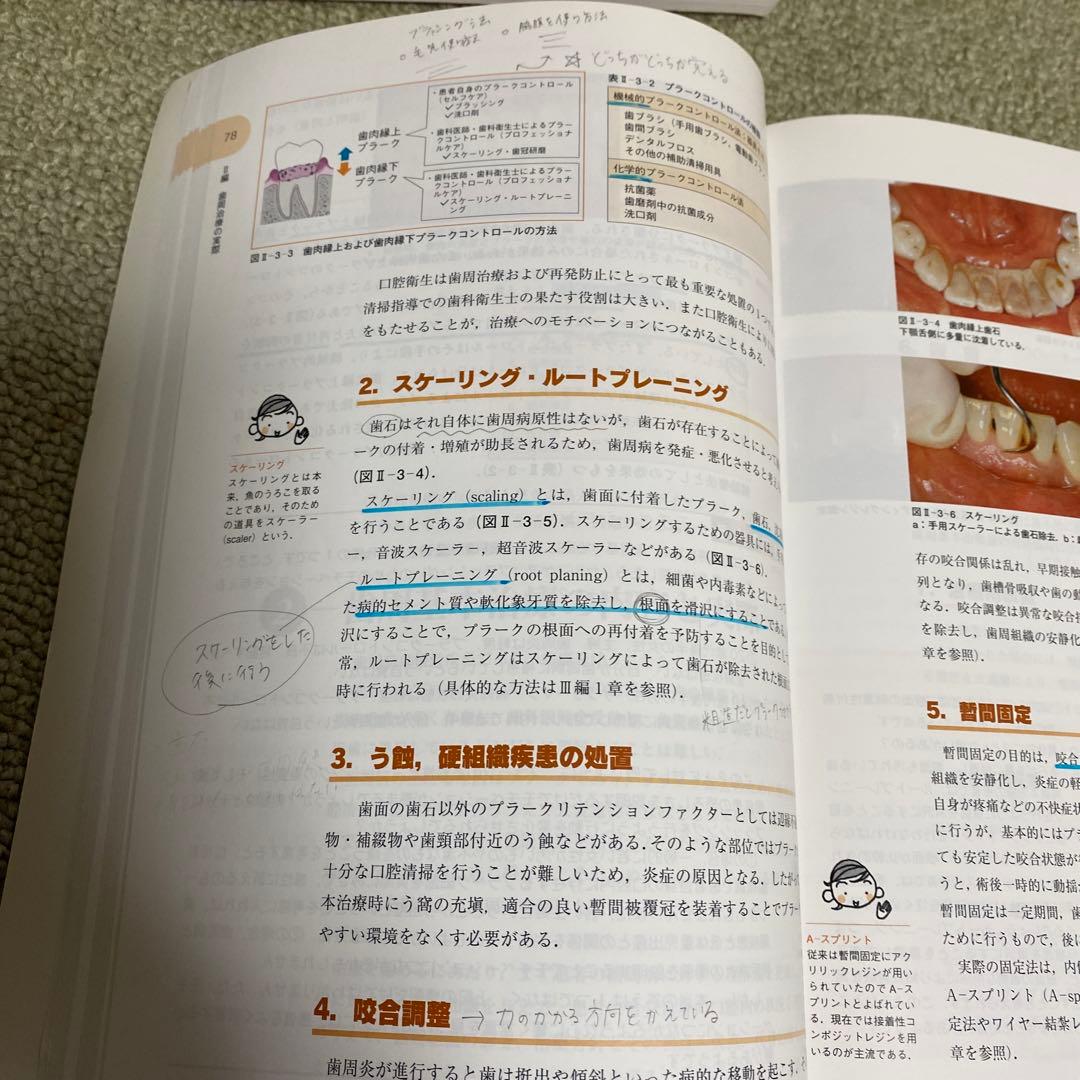 ブラッシング法
毛先使う方法
脇腹を使う方法
☆どっちがどっちか覚える
78
Ⅱ編 歯周治療の実際
歯肉縁上
プラーク
歯肉縁下
プラーク
・患者自身のプラークコントロール
（セルフケア）
✓ブラッシング
✓洗口剤
・歯科医師・歯科衛生士によるプラー
クコントロール（プロフェッショナ
ルケア）
✓スケーリング・歯冠研磨
・歯科医師・歯科衛生士によるプラー
クコントロール（プロフェッショナ
ルケア）
✓スケーリング・ルートプレーニ
ング
図Ⅱ-3-3 歯肉縁上および歯肉縁下プラークコントロールの方法
表Ⅱ-3-2 プラークコントロールの
機械的プラークコントロール法
歯ブラシ（手用歯ブラシ，電動歯ブラシ
歯間ブラシ
デンタルフロス
その他の補助清掃用具
化学的プラークコントロール法
抗菌薬
歯磨剤中の抗菌成分
洗口剤
口腔衛生は歯周治療および再発防止にとって最も重要な処置の1つで
清掃指導での歯科衛生士の果たす役割は大きい．また口腔衛生により
をもたせることが，治療へのモチベーションにつながることもある．
2．スケーリング・ルートプレーニング
歯石はそれ自体に歯周病原性はないが，歯石が存在することによって
ークの付着・増殖が助長されるため，歯周病を発症・悪化させると
（図Ⅱ-3-4）．
スケーリング（scaling）とは，歯面に付着したプラーク，歯石，
を行うことである（図Ⅱ-3-5）．スケーリングするための器具には，
ー，音波スケーラー，超音波スケーラーなどがある（図Ⅱ-3-6）．
ルートプレーニング（root planing）とは，細菌や内毒素などによって
た病的セメント質や軟化象牙質を除去し，根面を滑沢にすることである
沢にすることで，プラークの根面への再付着を予防することを目的とし
常，ルートプレーニングはスケーリングによって歯石が除去された根面
時に行われる（具体的な方法はⅢ編1章を参照）．
スケーリング
スケーリングとは本
来，魚のうろこを取る
ことであり，そのため
の道具をスケーラー
（scaler）という．
スケーリングをした
後に行う
粗造だとプラーク
3．う蝕，硬組織疾患の処置
歯面の歯石以外のプラークリテンションファクターとしては辺縁
物・補綴物や歯頸部付近のう蝕などがある．そのような部位ではプラー
十分な口腔清掃を行うことが難しいため，炎症の原因となる．したがって
本治療時にう窩の充塡，適合の良い暫間被覆冠を装着することでプラー
やすい環境をなくす必要がある．
4．咬合調整 → 力のかかる方向をかえている
歯周炎が進行すると歯は挺出や傾斜といった病的な移動を起こす．
図Ⅱ-3-4 歯肉縁上歯石
下顎舌側に多量に沈着している．
図Ⅱ-3-6 スケーリング
a：手用スケーラーによる歯石除去．b：
存の咬合関係は乱れ，早期接触
列となり，歯槽骨吸収や歯の動
なる．咬合調整は異常な咬合
を除去し，歯周組織の安静化
章を参照）．
5．暫間固定
暫間固定の目的は，咬合
組織を安静化し，炎症の軽
自身が疼痛などの不快症状
に行うが，基本的にはプラ
ても安定した咬合状態が
うと，術後一時的に動揺が
暫間固定は一定期間，歯
ために行うもので，後に
実際の固定法は，内側
A-スプリント（A-sp
定法やワイヤー結紮レ
章を参照）．
A-スプリント
従来は暫間固定にアク
リリックレジンが用い
られていたのでA-ス
プリントとよばれてい
る．現在では接着性コ
ンポジットレジンを用
いるのが主流である．